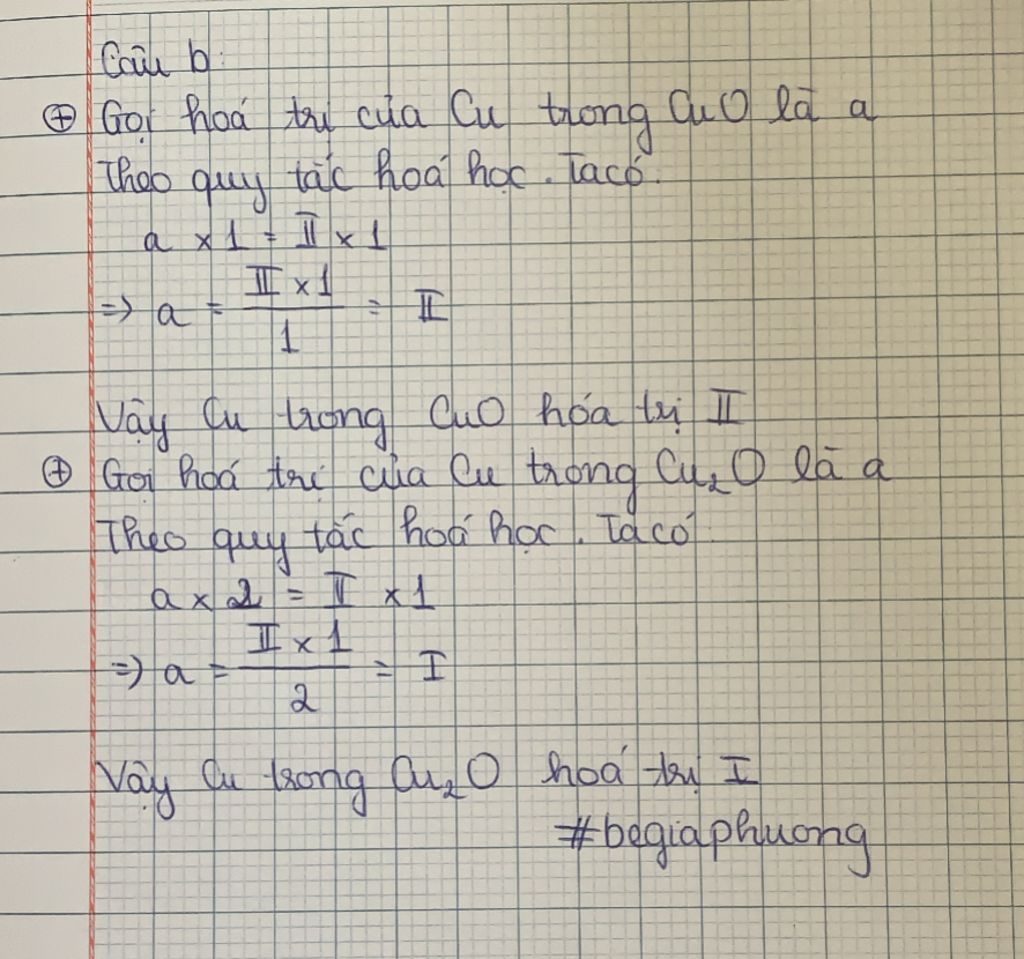 Câu b:
⊕ Gọi hoá trị của Cu trong CuO là a
Theo quy tắc hoá học. Ta có:
a × 1 = II × 1
=> a = II × 1 / 1 = II
Vậy Cu trong CuO hóa trị II
⊕ Gọi hoá trị của Cu trong Cu₂O là a
Theo quy tắc hoá học. Ta có:
a × 2 = II × 1
=> a = II × 1 / 2 = I
Vậy Cu trong Cu₂O hoá trị I
#begiaphuong